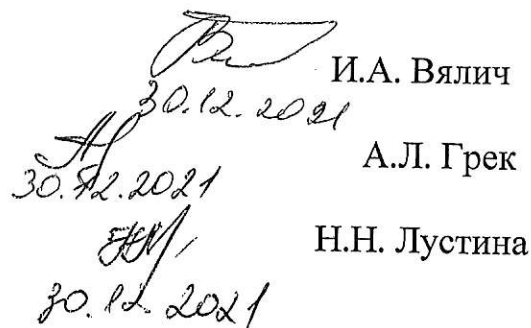 И.А. Вялич
30.12.2021
А.Л. Грек
30.12.2021
Н.Н. Лустина
30.12.2021